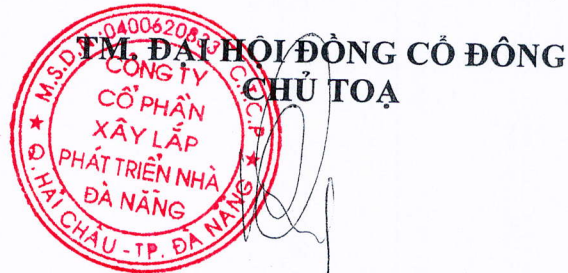 TM. ĐẠI HỘI ĐỒNG CỔ ĐÔNG
CHỦ TOẠ
M.S.D.N:0400620833-C.T.C.P
CÔNG TY
CỔ PHẦN
XÂY LẮP
PHÁT TRIỂN NHÀ
ĐÀ NẴNG
★ Q. HẢI CHÂU - TP. ĐÀ NẴNG ★